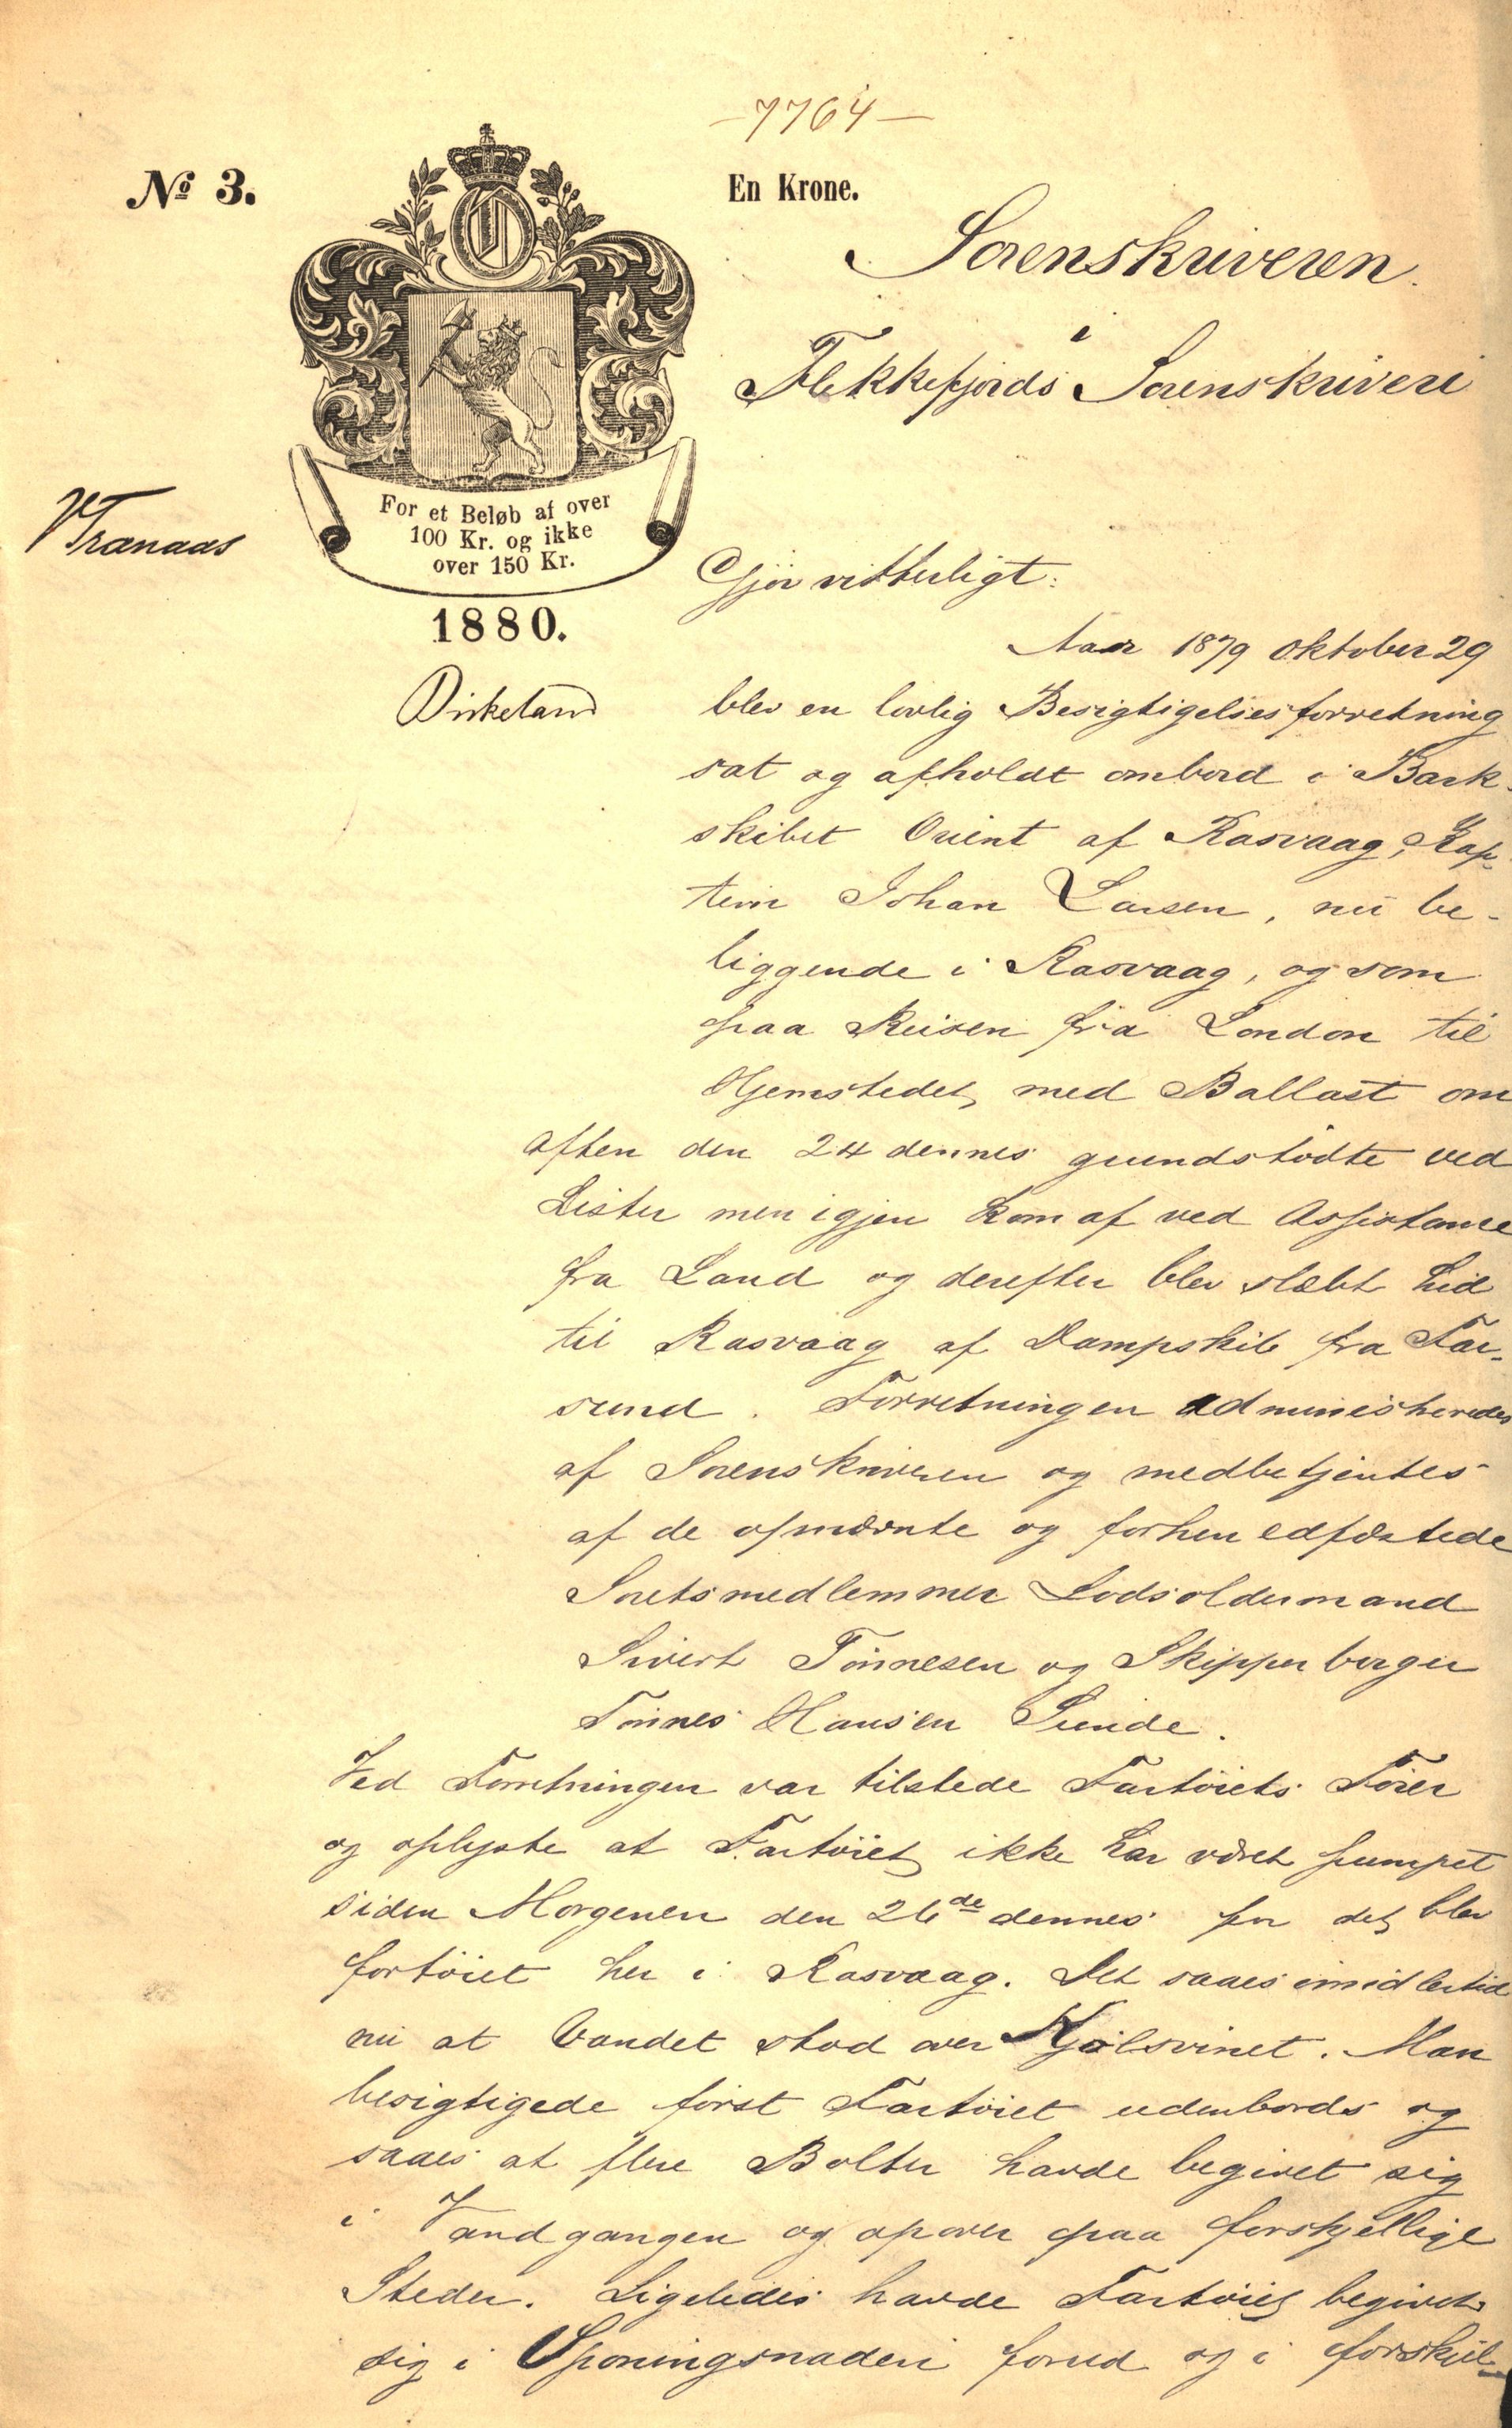 —7764—
№ 3.
En Krone.
Sorenskriveren
i
Flekkefjords Sorenskriveri
For et Beløb af over
100 Kr. og ikke
over 150 Kr.
Tranaas
1880.
Gjör vitterligt:
Aar 1879 Oktober 29
Birkeland
blev en lovlig Besigtigelsesforretning
sat og afholdt ombord i Bark-
skibet Orient af Rasvaag, Kap-
tein Johan Larsen, nu be-
liggende i Rasvaag, og som
paa Reisen fra London til
Hjemstedet med Ballast om
Aften den 24 dennes grundstödte ved
Lister men igjen kom af ved Assistance
fra Land og derefter blev slæbt hid
til Rasvaag af Dampskib fra Far-
sund. Forretningen administreredes
af Sorenskriveren og medbetjentes
af de opnævnte og forhen edfæstede
Soretsmedlemmer Lodsoldermand
Sivert Tönnesen og Skipper borger
Tönnes Hansen Sunde.
Ved Forretningen var tilstede Fartöiets Förer
og oplyste at Fartöiet ikke har været pumpet
siden Morgenen den 26de dennes för det blev
fortöiet her i Rasvaag. Det saaes imidlertid
nu at Vandet stod over Kjölsvinet. Man
besigtigede först Fartöiet udenbords og
saaes at flere Bolter havde begivet sig
i Vandgangen og opover paa forskjellige
Steder. Ligeledes havde Fartöiet begivet
sig i Sponingsnaden forud og i forskjel-